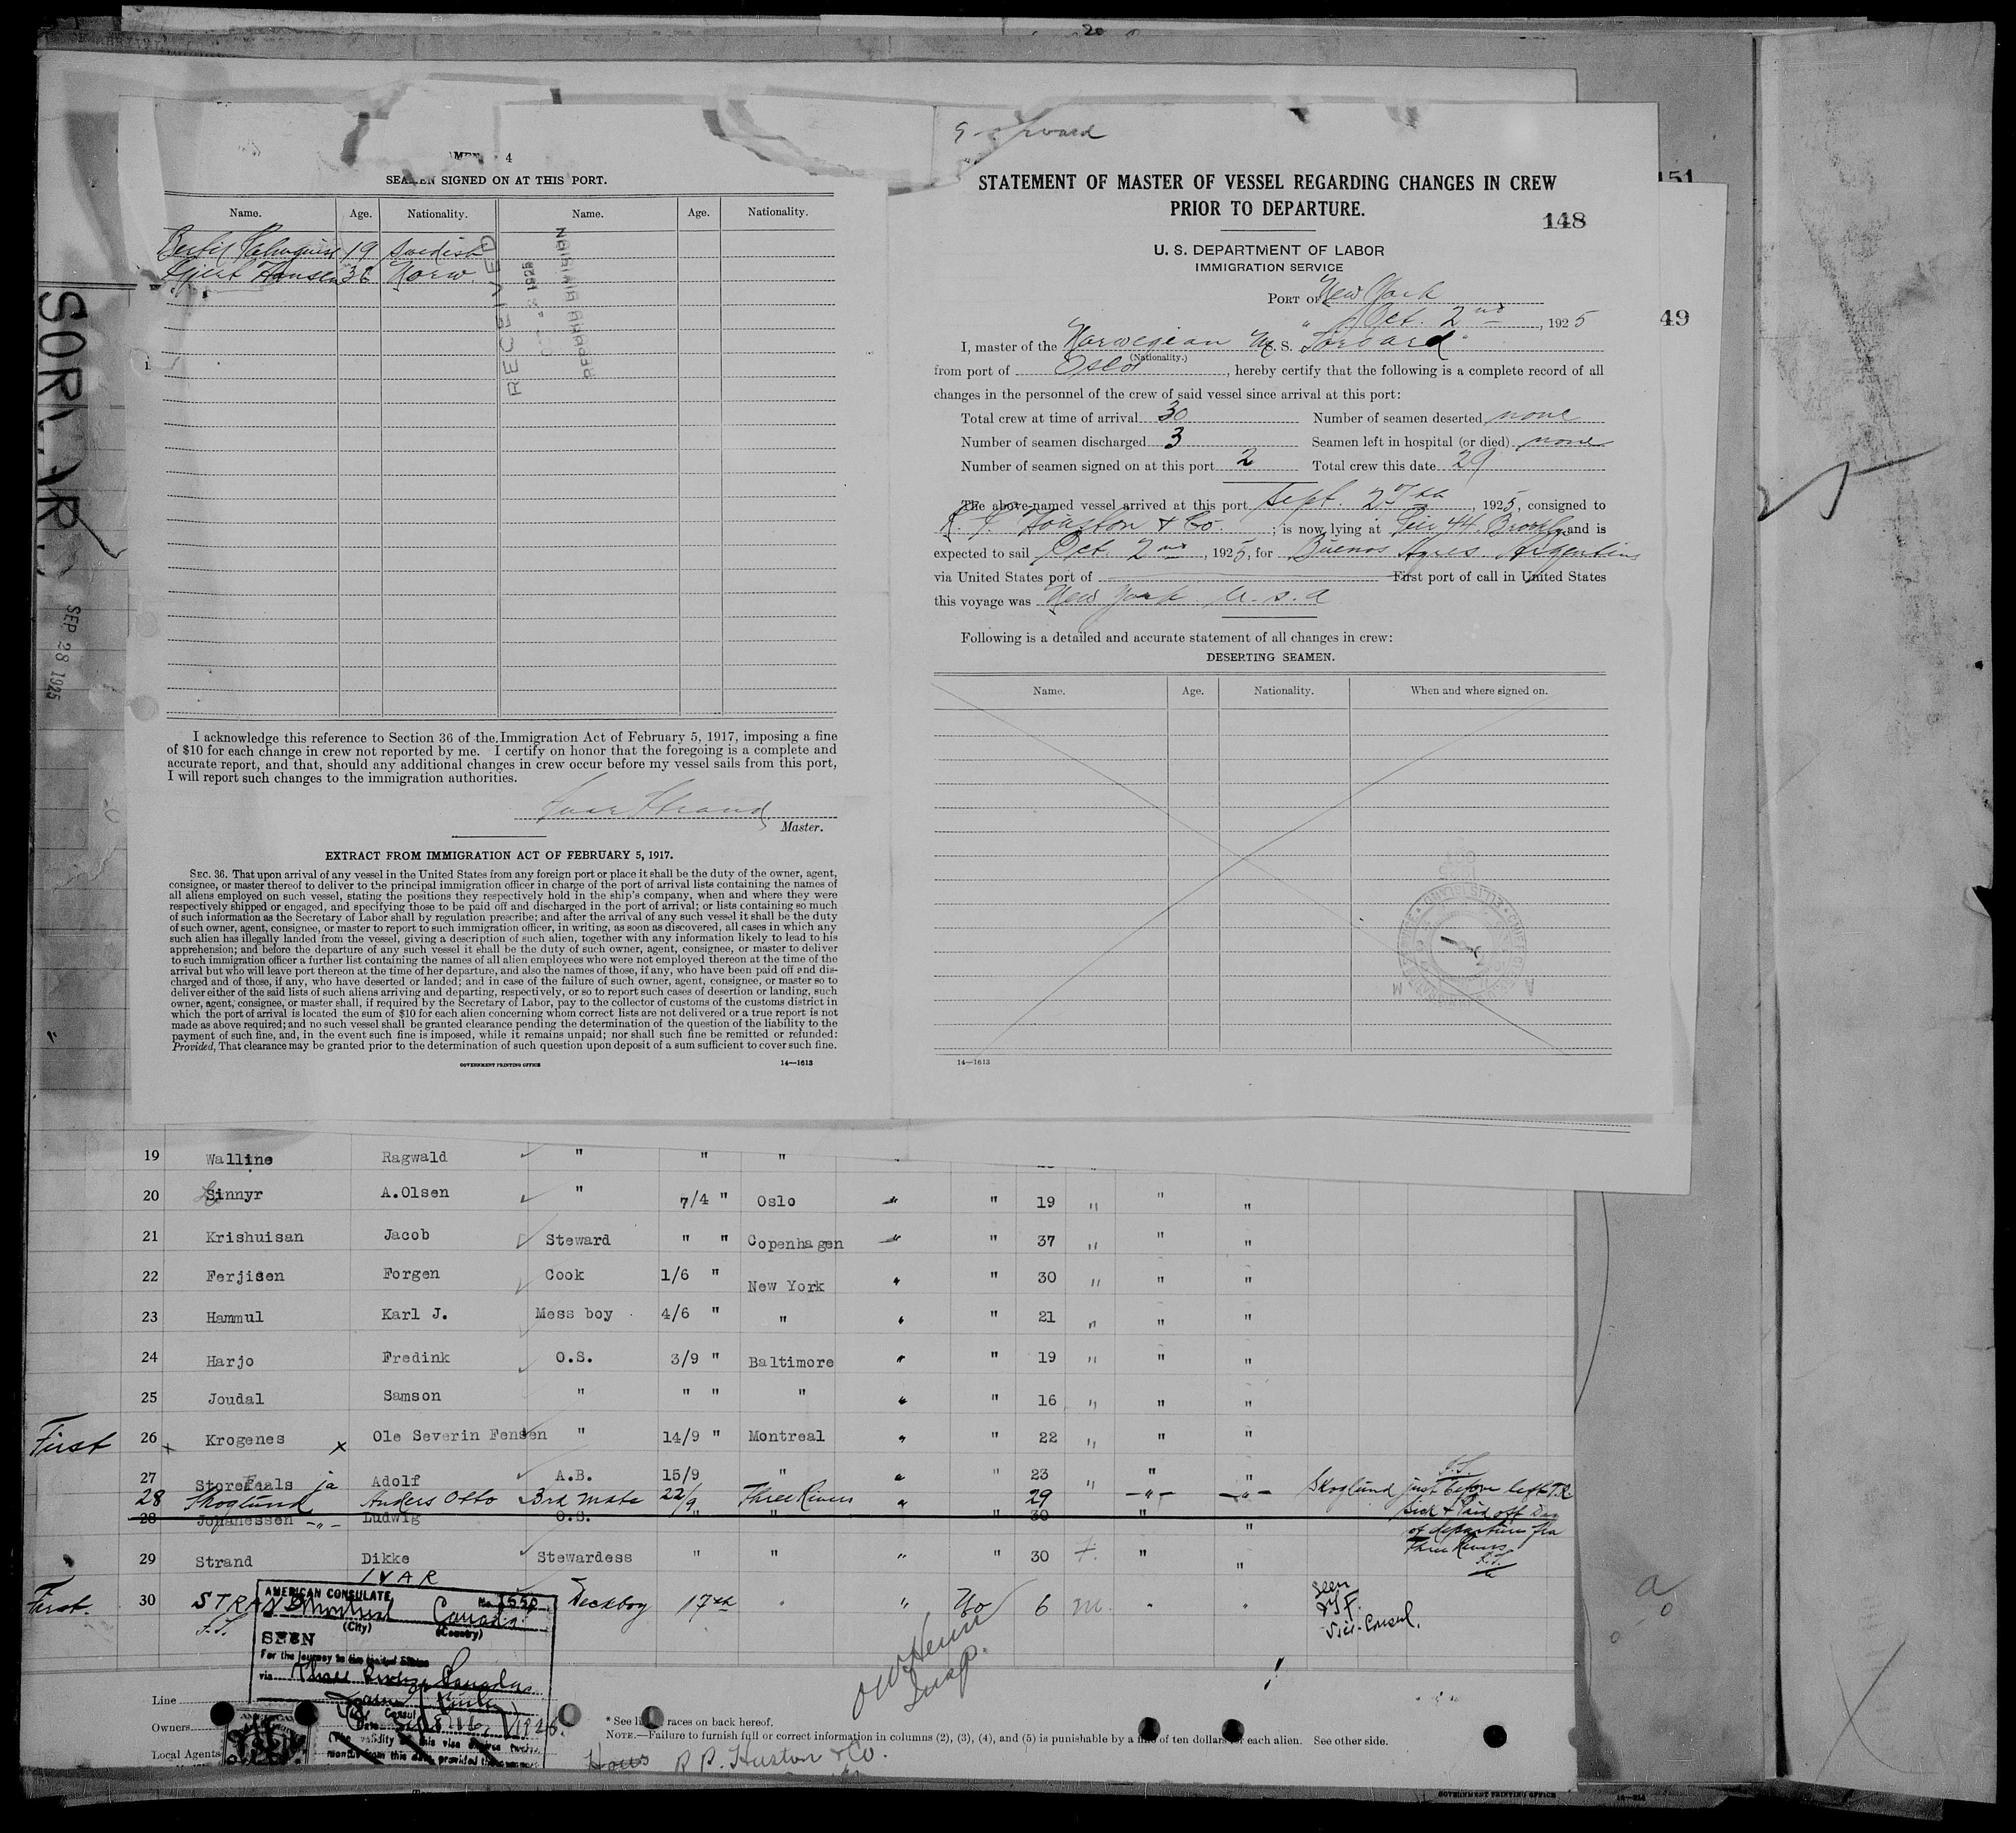 20
SEAMEN SIGNED ON AT THIS PORT.
Name. Age. Nationality. Name. Age. Nationality.
19 Swedish
Hansen 36 Norw.
RECEIVED
1925
I acknowledge this reference to Section 36 of the Immigration Act of February 5, 1917, imposing a fine
of $10 for each change in crew not reported by me. I certify on honor that the foregoing is a complete and
accurate report, and that, should any additional changes in crew occur before my vessel sails from this port,
I will report such changes to the immigration authorities.
Ivar Strand
Master.
EXTRACT FROM IMMIGRATION ACT OF FEBRUARY 5, 1917.
SEC. 36. That upon arrival of any vessel in the United States from any foreign port or place it shall be the duty of the owner, agent,
consignee, or master thereof to deliver to the principal immigration officer in charge of the port of arrival lists containing the names of
all aliens employed on such vessel, stating the positions they respectively hold in the ship's company, when and where they were
respectively shipped or engaged, and specifying those to be paid off and discharged in the port of arrival; or lists containing so much
of such information as the Secretary of Labor shall by regulation prescribe; and after the arrival of any such vessel it shall be the duty
of such owner, agent, consignee, or master to report to such immigration officer, in writing, as soon as discovered, all cases in which any
such alien has illegally landed from the vessel, giving a description of such alien, together with any information likely to lead to his
apprehension; and before the departure of any such vessel it shall be the duty of such owner, agent, consignee, or master to deliver
to such immigration officer a further list containing the names of all alien employees who were not employed thereon at the time of the
arrival but who will leave port thereon at the time of her departure, and also the names of those, if any, who have been paid off and dis-
charged and of those, if any, who have deserted or landed; and in case of the failure of such owner, agent, consignee, or master so to
deliver either of the said lists of such aliens arriving and departing, respectively, or so to report such cases of desertion or landing, such
owner, agent, consignee, or master shall, if required by the Secretary of Labor, pay to the collector of customs of the customs district in
which the port of arrival is located the sum of $10 for each alien concerning whom correct lists are not delivered or a true report is not
made as above required; and no such vessel shall be granted clearance pending the determination of the question of the liability to the
payment of such fine, and, in the event such fine is imposed, while it remains unpaid; nor shall such fine be remitted or refunded:
Provided, That clearance may be granted prior to the determination of such question upon deposit of a sum sufficient to cover such fine.
GOVERNMENT PRINTING OFFICE 14—1613
STATEMENT OF MASTER OF VESSEL REGARDING CHANGES IN CREW
PRIOR TO DEPARTURE.
148
151
49
U. S. DEPARTMENT OF LABOR
IMMIGRATION SERVICE
PORT OF New York
Oct. 2nd, 1925
I, master of the Norwegian M. S.
(Nationality.)
from port of Oslo, hereby certify that the following is a complete record of all
changes in the personnel of the crew of said vessel since arrival at this port:
Total crew at time of arrival 30 Number of seamen deserted none
Number of seamen discharged 3 Seamen left in hospital (or died) none
Number of seamen signed on at this port 2 Total crew this date 29
The above-named vessel arrived at this port Sept. 27th, 1925, consigned to
Houston & Co.; is now lying at Pier 44, Brooklyn and is
expected to sail Oct. 2nd, 1925, for Buenos Ayres Argentina
via United States port of First port of call in United States
this voyage was New York. U.S.A
Following is a detailed and accurate statement of all changes in crew:
DESERTING SEAMEN.
Name. Age. Nationality. When and where signed on.
14—1613
SEP 28 1925
19 Walline Ragwald " " "
20 Sinnyr A.Olsen " 7/4 " Oslo " " 19 " " "
21 Krishuisan Jacob Steward " " Copenhagen " " 37 " " "
22 Ferjisen Forgen Cook 1/6 " New York " " 30 " " "
23 Hammul Karl J. Mess boy 4/6 " " " " 21 " " "
24 Harjo Fredink O.S. 3/9 " Baltimore " " 19 " " "
25 Joudal Samson " " " " " " 16 " " "
First 26 x Krogenes x Ole Severin Fensen " 14/9 " Montreal " " 22 " " "
27 ja Adolf A.B. 15/9 " " " 23 " " "
28 Skoglund Anders Otto 3rd mate 22/9 Three Rivers " 29 -"- -"- Skoglund just before left T.R.
28 Johanessen -"- Ludwig O.S. " " " 30 " " Sick & Paid off Day
of departure fra
Three Rivers
29 Strand Dikke Stewardess " " " " 30 f. " "
First. 30 STRAND IVAR Deckboy 17th " " No 6 m. " "
Seen
Vice-Consul.
AMERICAN CONSULATE
No.
Montreal Canada
(City) (Country)
SEEN
For the journey to the United States
via Three Rivers Canada
Consul
Date
(The validity of this visa expires twelve
months from this date, provided the
Insp.
Line
Owners
Local Agents
* See list races on back hereof.
NOTE.—Failure to furnish full or correct information in columns (2), (3), (4), and (5) is punishable by a fine of ten dollars for each alien. See other side.
R P. Huston & Co.
GOVERNMENT PRINTING OFFICE